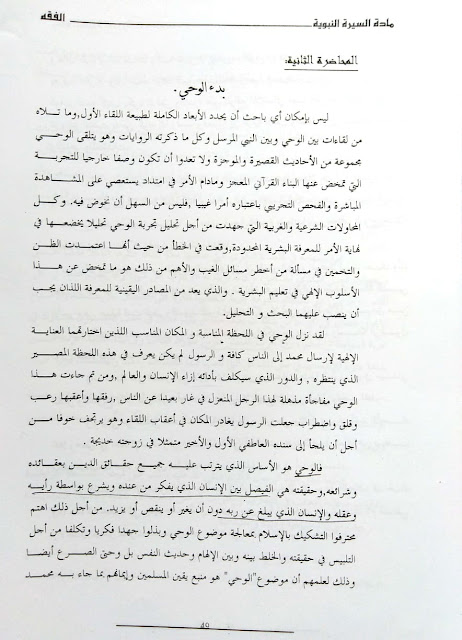 مادة السيرة النبوية الفقه
المحاضرة الثانية:
بدء الوحي.
ليس بإمكان أي باحث أن يحدد الأبعاد الكاملة لطبيعة اللقاء الأول,وما تلاه
من لقاءات بين الوحي وبين النبي المرسل وكل ما ذكرته الروايات وهو يتلقى الوحي
مجموعة من الأحاديث القصيرة والموجزة ولا تعدوا أن تكون وصفا خارجيا للتجربة
التي تمخض عنها البناء القرآني المعجز ومادام الأمر في امتداد يستعصي على المشاهدة
المباشرة والفحص التجريبي باعتباره أمرا غيبيا ,فليس من السهل أن نخوض فيه. وكل
المحاولات الشرعية والغربية التي جهدت من أجل تحليل تجربة الوحي تحليلا يخضعها في
نهاية الأمر للمعرفة البشرية المحدودة,وقعت في الخطأ من حيث أنها اعتمدت الظن
والتخمين في مسألة من أخطر مسائل الغيب والأهم من ذلك هو ما تمخض عن هذا
الأسلوب الإلهي في تعليم البشرية . والذي يعد من المصادر اليقينية للمعرفة اللذان يجب
أن ينصب عليهما البحث و التحليل.
لقد نزل الوحي في اللحظة المناسبة و المكان المناسب اللذين اختارتهما العناية
الإلهية لإرسال محمد إلى الناس كافة و الرسول لم يكن يعرف في هذه اللحظة المصير
الذي ينتظره , والدور الذي سيكلف بأدائه إزاء الإنسان والعالم ,ومن تم جاءت هذا
الوحي مفاجأة مذهلة لهذا الرجل المنعزل في غار بعيدا عن الناس ,رفقها وأعقبها رعب
وقلق واضطراب جعلت الرسول يغادر المكان في أعقاب اللقاء وهو يرتجف خوفا من
أجل أن يلجأ إلى سنده العاطفي الأول والأخير متمثلا في زوجته خديجة .
فالوحي هو الأساس الذي يترتب عليه جميع حقائق الدين بعقائده
وشرائعه,وحقيقته هي الفيصل بين الإنسان الذي يفكر من عنده ويشرع بواسطة رأيه
وعقله والإنسان الذي يبلغ عن ربه دون أن يغير أو ينقص أو يزيد. من أجل ذلك اهتم
محترفوا التشكيك بالإسلام بمعالجة موضوع الوحي وبذلوا جهدا فكريا وتكلفا من أجل
التلبيس في حقيقته والخلط بينه وبين الإلهام وحديث النفس بل وحتى الصرع أيضا
وذلك لعلمهم أن موضوع"الوحي" هو منبع يقين المسلمين وإيمانهم بما جاء به محمد